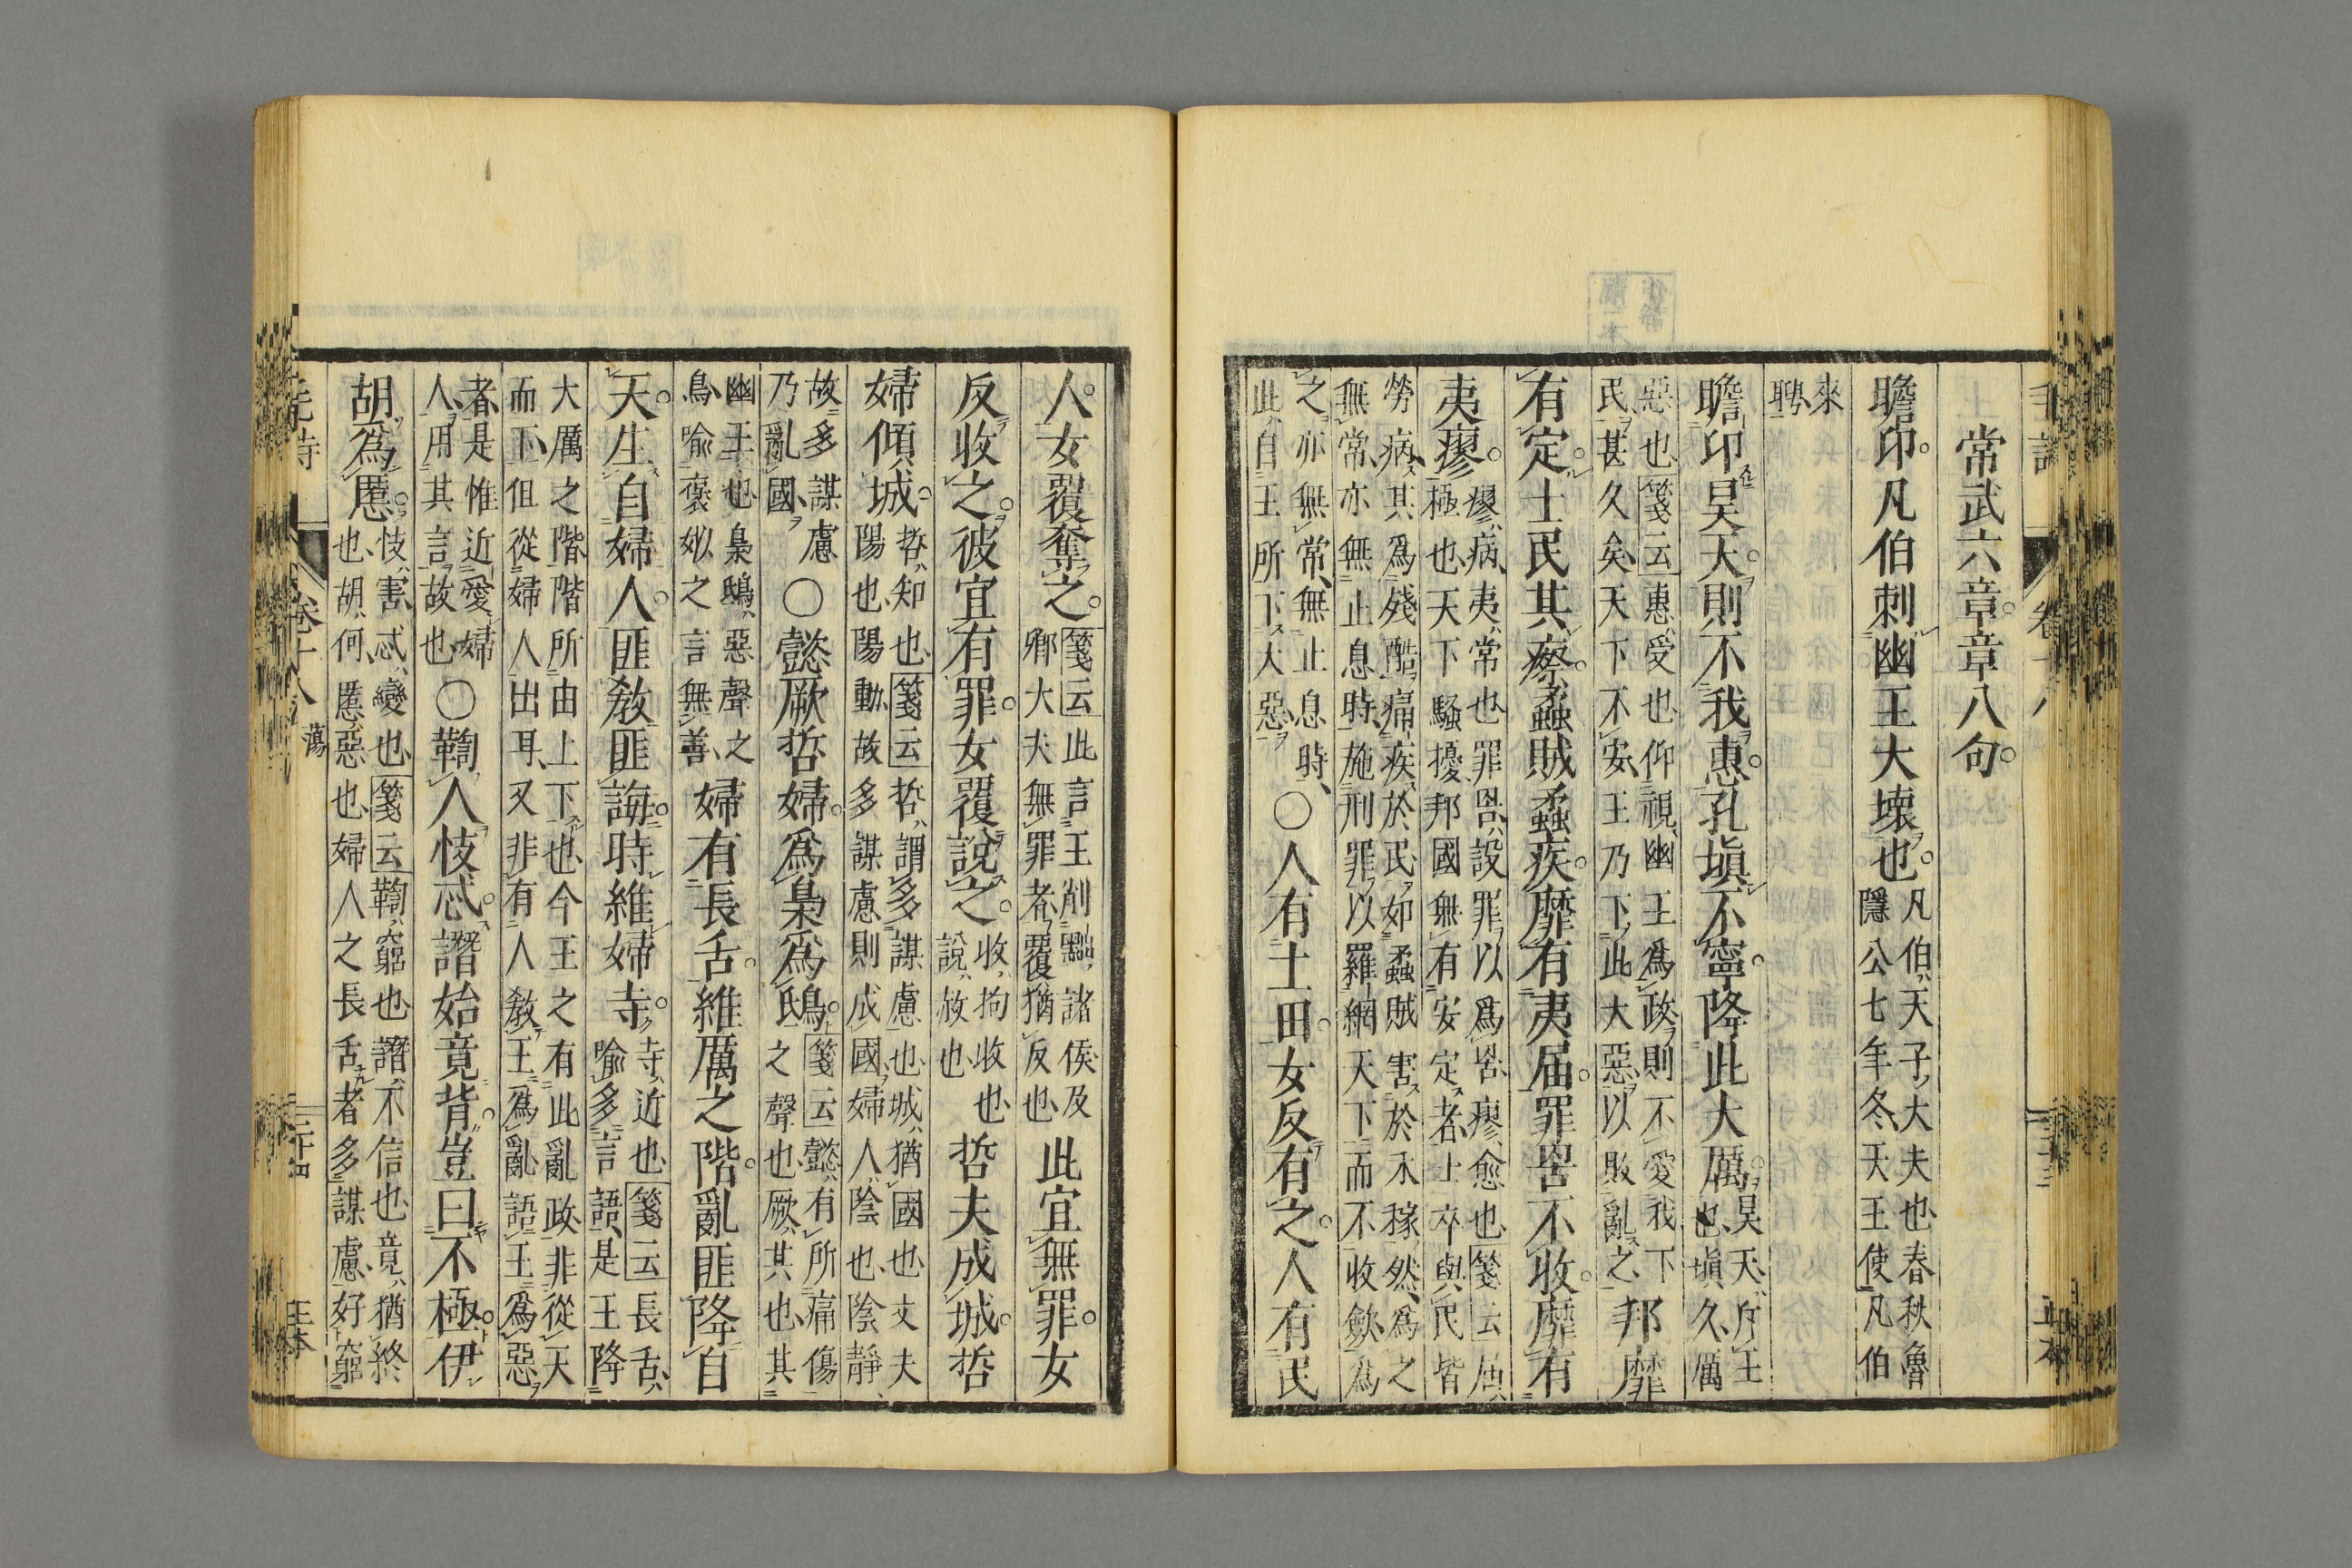 常武六章章八句
瞻卬凡伯刺幽王大壞也凡伯天子大夫也春秋魯
隱公七年冬天王使凡伯
來
聘
瞻卬昊天則不我惠孔塡不寧降此大厲昊天斥王
也塡久厲
惡也箋云惠受也仰視幽王爲政則不愛我下
民甚久矣天下不安王乃下此大惡以敗亂之邦靡
有定士民其瘵蟊賊蟊疾靡有夷届罪罟不收靡有
夷瘳瘳病夷常也罪罟設罪以爲罟瘳愈也箋云届
極也天下騷擾邦國無有安定者士卒與民皆
勞病其爲殘酷痛疾於民如蟊賊害於禾稼然爲之
無常亦無止息時施刑罪以羅網天下而不收斂爲
之亦無常無止息時
此自王所下大惡○人有土田女反有之人有民
人女覆奪之箋云此言王削黜諸侯及
卿大夫無罪者覆猶反也此宜無罪女
反收之彼宜有罪女覆說之收拘收也
說赦也哲夫成城哲
婦傾城哲知也箋云哲謂多謀慮也城猶國也丈夫
陽也陽動故多謀慮則成國婦人陰也陰靜
故多謀慮
乃亂國○懿厥哲婦爲梟爲鴟箋云懿有所痛傷
之聲也厥其也其
幽王也梟鴟惡聲之
鳥喻褒姒之言無善婦有長舌維厲之階亂匪降自
天生自婦人匪教匪誨時維婦寺寺近也箋云長舌
喻多言語是王降
大厲之階階所由上下也今王之有此亂政非從天
而下但從婦人出耳又非有人教王爲亂語王爲惡
者是惟近愛婦
人用其言故也○鞫人忮忒譖始竟背豈曰不極伊
胡爲慝忮害忒變也箋云鞫窮也譖不信也竟猶終
也胡何慝惡也婦人之長舌者多謀慮好窮
毛詩
卷十八
蕩
三十四